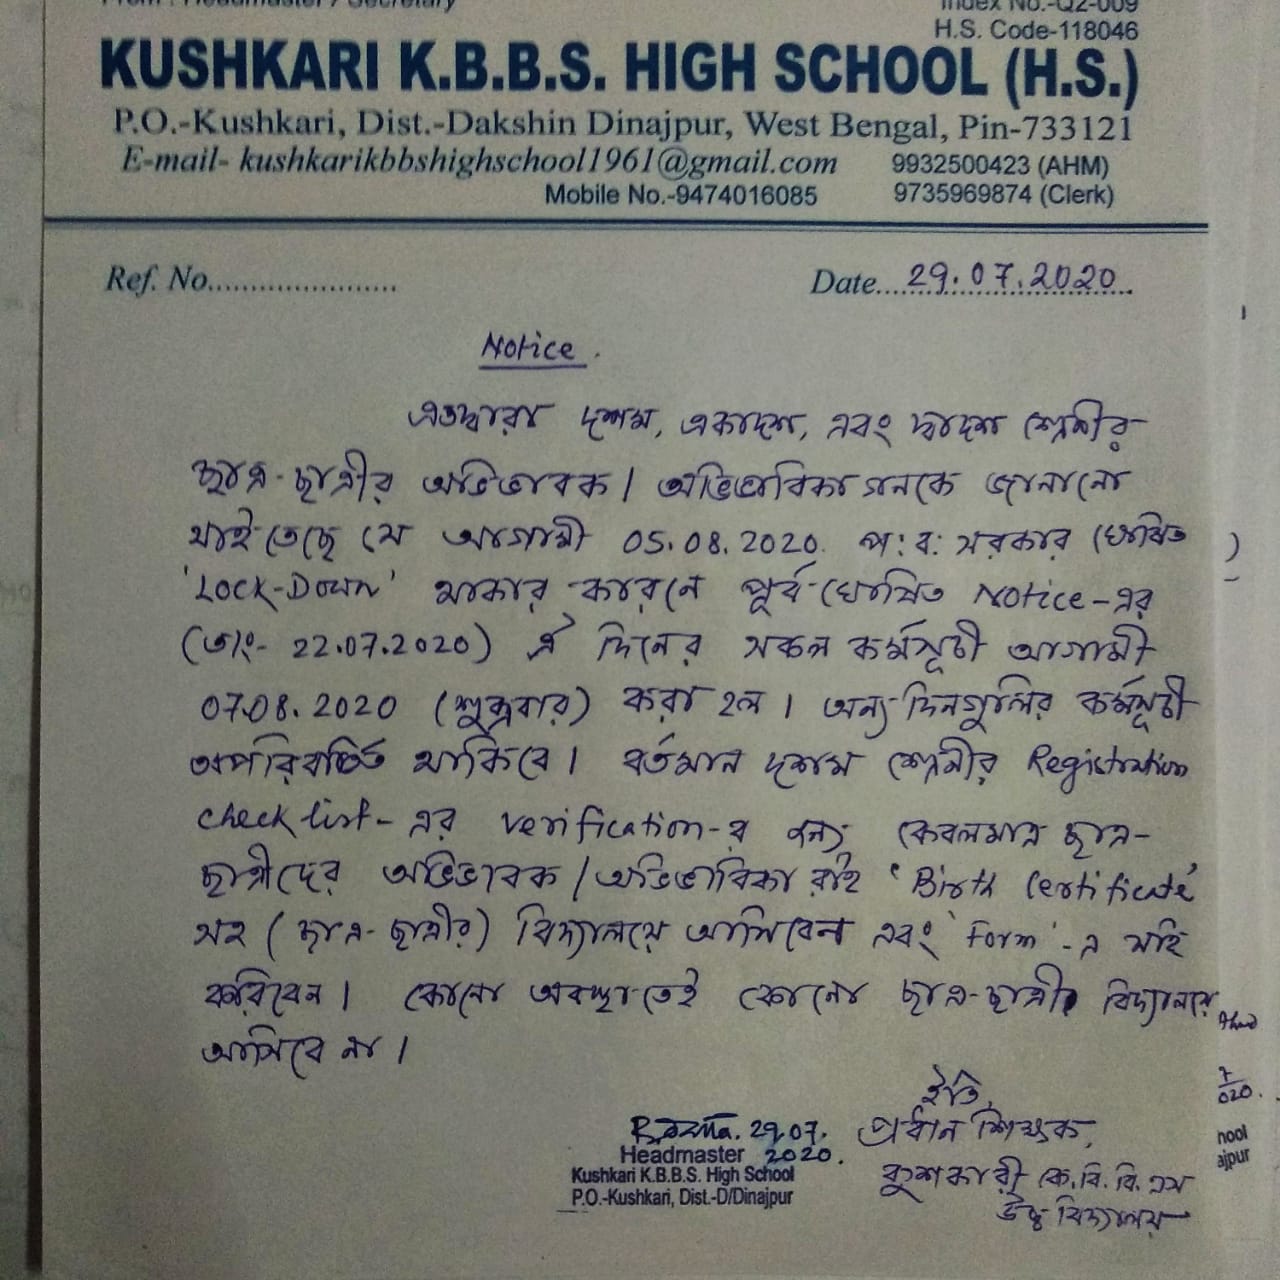 From : Headmaster / Secretary
Index No.-Q2-009
H.S. Code-118046
KUSHKARI K.B.B.S. HIGH SCHOOL (H.S.)
P.O.-Kushkari, Dist.-Dakshin Dinajpur, West Bengal, Pin-733121
E-mail- kushkarikbbshighschool1961@gmail.com 9932500423 (AHM)
Mobile No.-9474016085 9735969874 (Clerk)
Ref. No...................... Date....29.07.2020
Notice.
এতদ্বারা দশম, একাদশ, এবং দ্বাদশ শ্রেণীর
ছাত্র-ছাত্রীর অভিভাবক / অভিভাবিকাগনকে জানানো
যাইতেছে যে আগামী 05.08.2020. প: ব: সরকার ঘোষিত
'Lock-Down' থাকার কারনে পূর্ব-ঘোষিত Notice-এর
(তাং- 22.07.2020) ঐ দিনের সকল কর্মসূচী আগামী
07.08.2020 (শুক্রবার) করা হল। অন্য দিনগুলির কর্মসূচী
অপরিবর্তিত থাকিবে। বর্তমান দশম শ্রেণীর Registration
check list-এর verification-র জন্য কেবলমাত্র ছাত্র-
ছাত্রীদের অভিভাবক / অভিভাবিকা রাই 'Birth Certificate'
সহ (ছাত্র-ছাত্রীর) বিদ্যালয়ে আসিবেন এবং 'Form'-এ সহি
করিবেন। কোনো অবস্থাতেই কোনো ছাত্র-ছাত্রী বিদ্যালয়ে
আসিবে না।
ইতি,
প্রধান শিক্ষক,
কুশকারী কে.বি.বি.এস
উচ্চ বিদ্যালয়
29.07.
2020.
Headmaster
Kushkari K.B.B.S. High School
P.O.-Kushkari, Dist.-D/Dinajpur
hool
ajpur